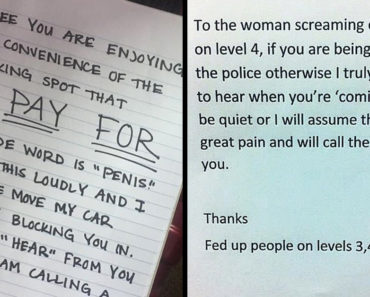 EE YOU ARE ENJOYING
CONVENIENCE OF THE
KING SPOT THAT
PAY FOR
DE WORD IS "PENIS."
THIS LOUDLY AND I
E MOVE MY CAR
BLOCKING YOU IN.
"HEAR" FROM YOU
AM CALLING A
To the woman screaming
on level 4, if you are being
the police otherwise I truly
to hear when you're 'comi
be quiet or I will assume th
great pain and will call the
you.
Thanks
Fed up people on levels 3,4